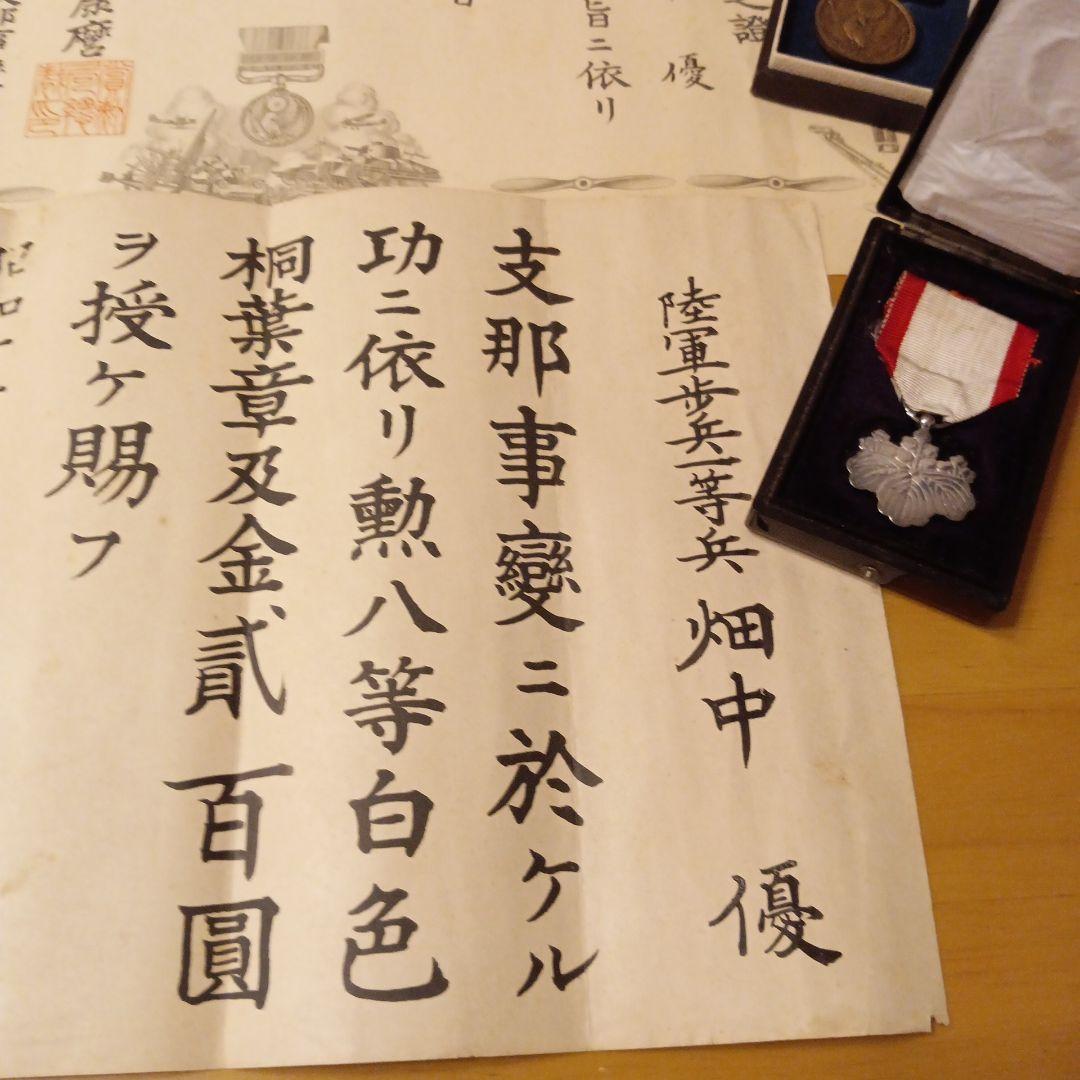 之證
優
旨ニ依リ
陸軍歩兵一等兵 畑中 優
支那事變ニ於ケル
功ニ依リ勲八等白色
桐葉章及金貳百圓
ヲ授ケ賜フ
昭和